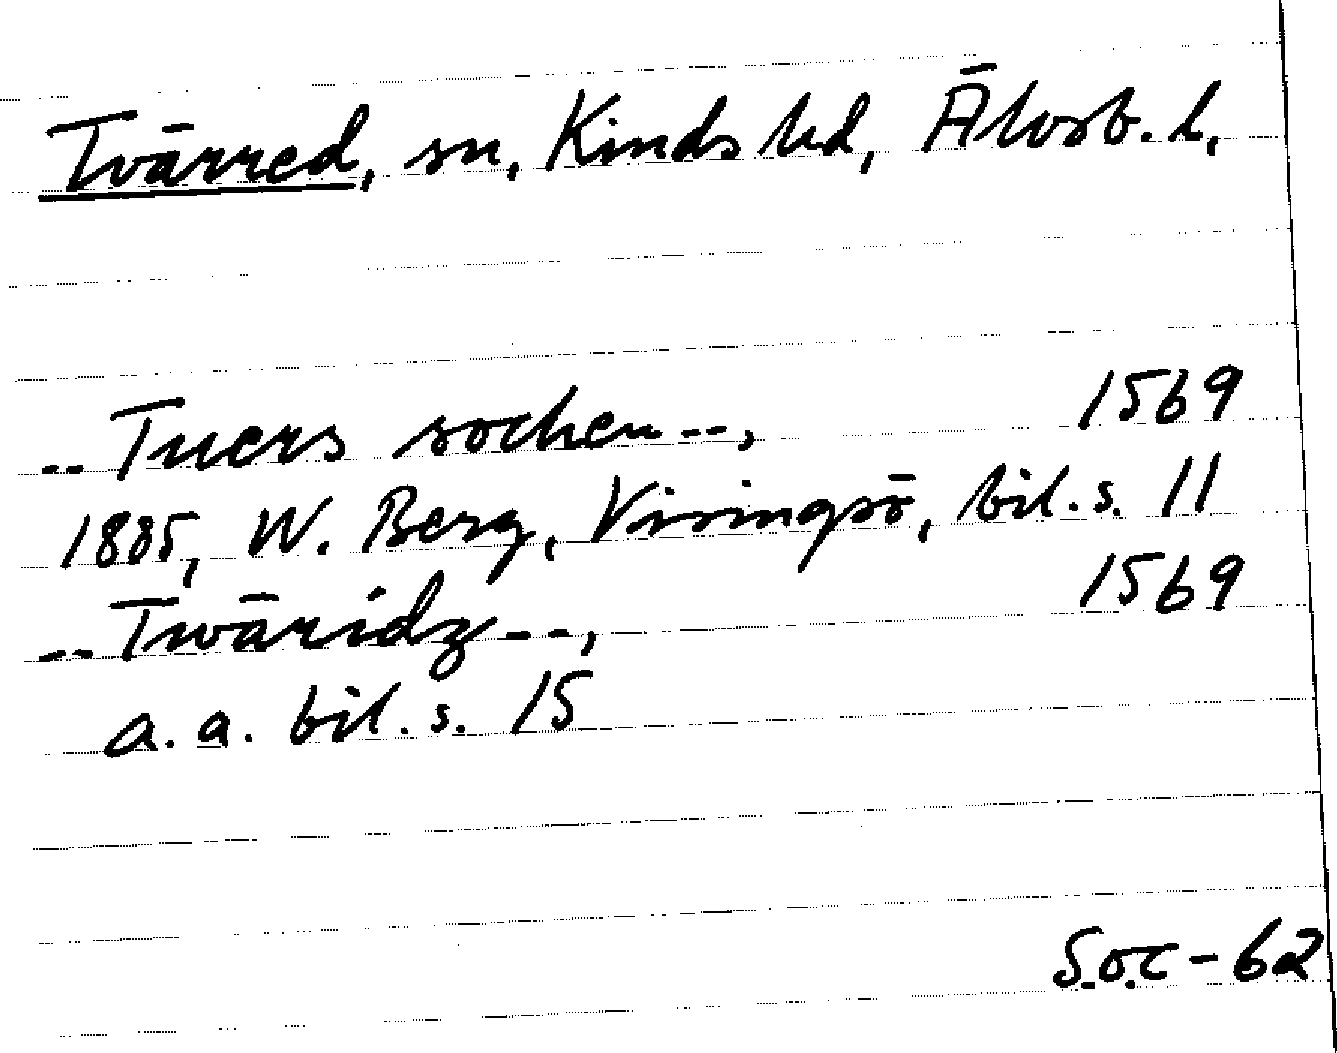 Tvärred, sn, Kinds hd, Älvsb. l,
-- Tuers sochen --, 1569
1885, W. Berg, Visingsö, bil. s. 11
-- Twäridz --, 1569
a. a. bil. s. 15
S.o.c - 62